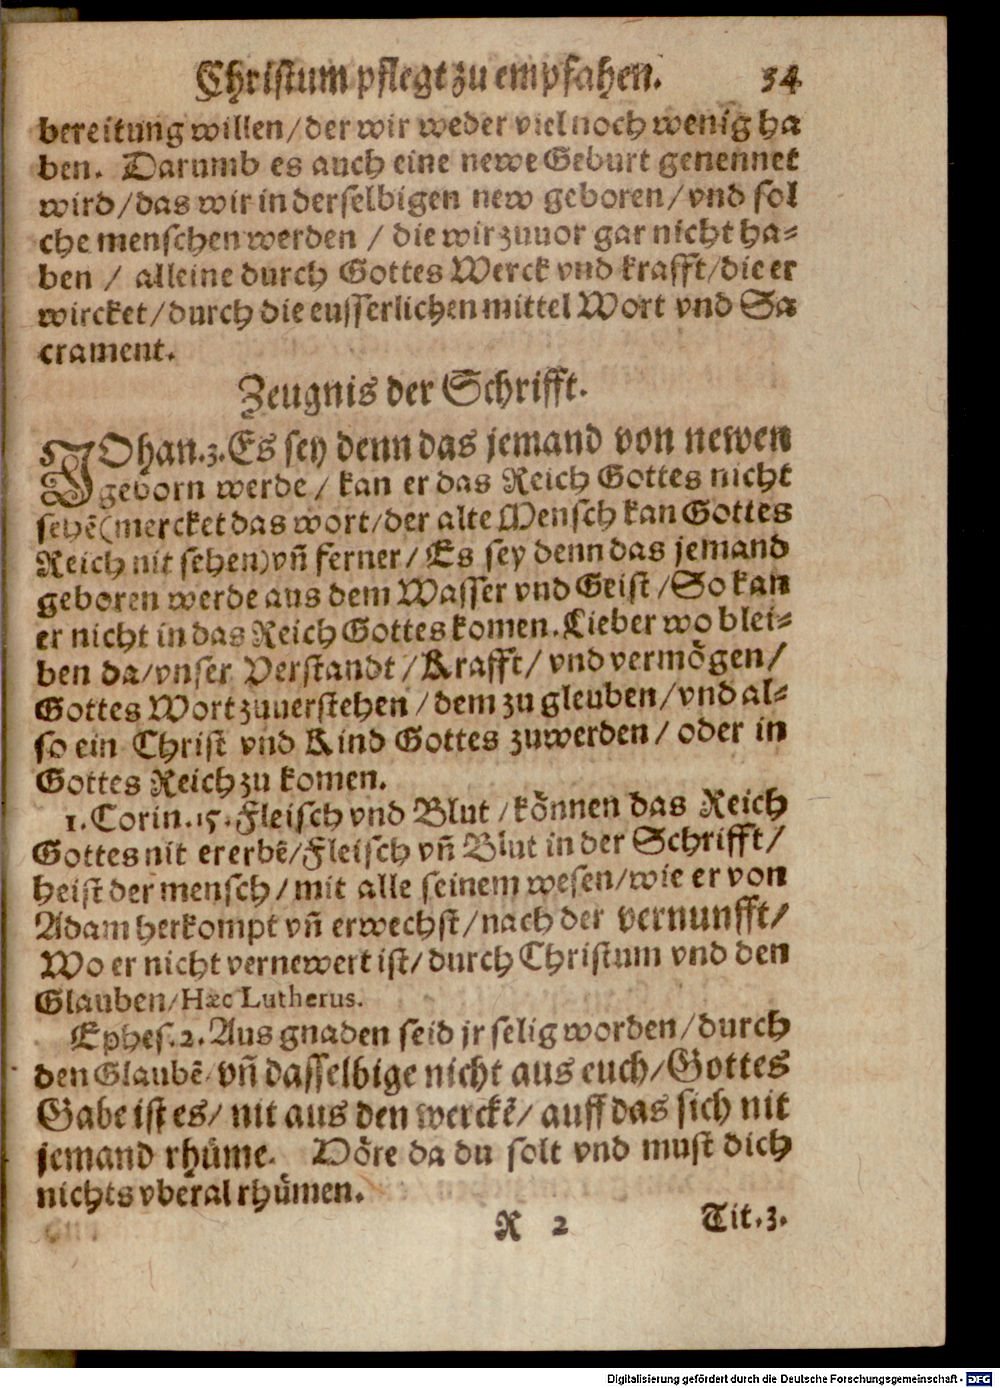 Christum pflegt zu empfahen. 34
bereitung willen/der wir weder viel noch wenig ha
ben. Darumb es auch eine newe Geburt genennet
wird/das wir in derselbigen new geboren/vnd sol
che menschen werden / die wir zuuor gar nicht ha-
ben / alleine durch Gottes Werck vnd krafft/die er
wircket/durch die eusserlichen mittel Wort vnd Sa
crament.
Zeugnis der Schrifft.
JOhan.3.Es sey denn das jemand von newen
geborn werde / kan er das Reich Gottes nicht
sehē(mercket das wort/der alte Mensch kan Gottes
Reich nit sehen)vñ ferner/ Es sey denn das jemand
geboren werde aus dem Wasser vnd Geist /So kan
er nicht in das Reich Gottes komen. Lieber wo blei-
ben da/vnser Verstandt/Krafft/ vnd vermögen/
Gottes Wort zuuerstehen/dem zu gleuben/vnd al-
so ein Christ vnd Kind Gottes zuwerden/ oder in
Gottes Reich zu komen.
1. Corin.15.Fleisch vnd Blut /können das Reich
Gottes nit ererbē/Fleisch vñ Blut in der Schrifft/
heist der mensch/mit alle seinem wesen/wie er von
Adam herkompt vñ erwechst/nach der vernunfft/
Wo er nicht vernewert ist/durch Christum vnd den
Glauben/Hæc Lutherus.
Ephes.2.Aus gnaden seid jr selig worden/durch
den Glaubē/vñ dasselbige nicht aus euch/Gottes
Gabe ist es/ nit aus den werckē/ auff das sich nit
jemand rhüme. Höre da du solt vnd must dich
nichts vberal rhümen.
R 2 Tit.3.
Digitalisierung gefördert durch die Deutsche Forschungsgemeinschaft - DFG